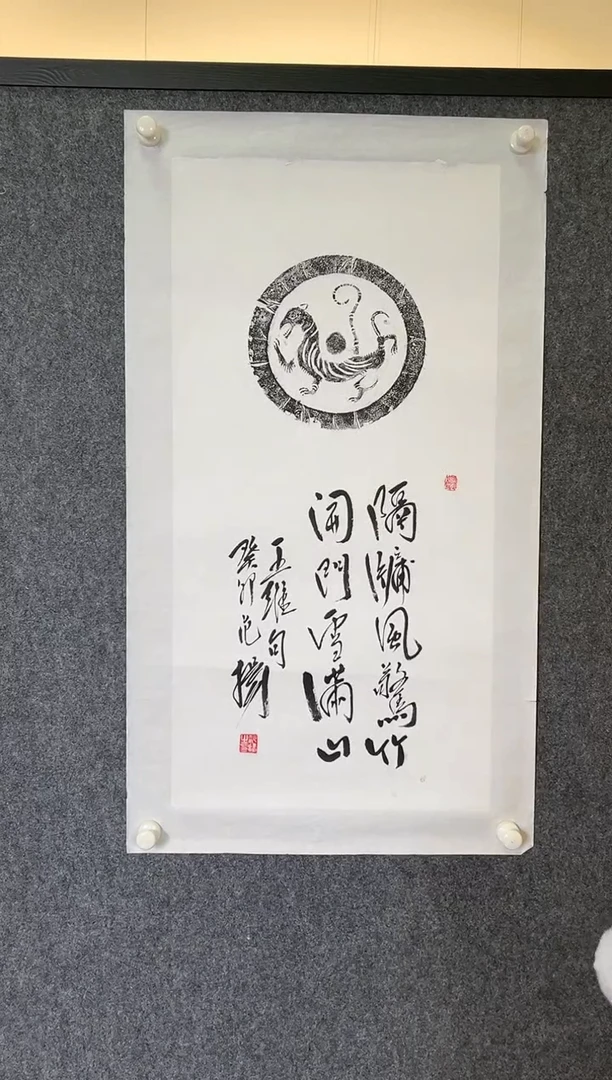 隔牖風驚竹
開門雪滿山
王維句
癸卯